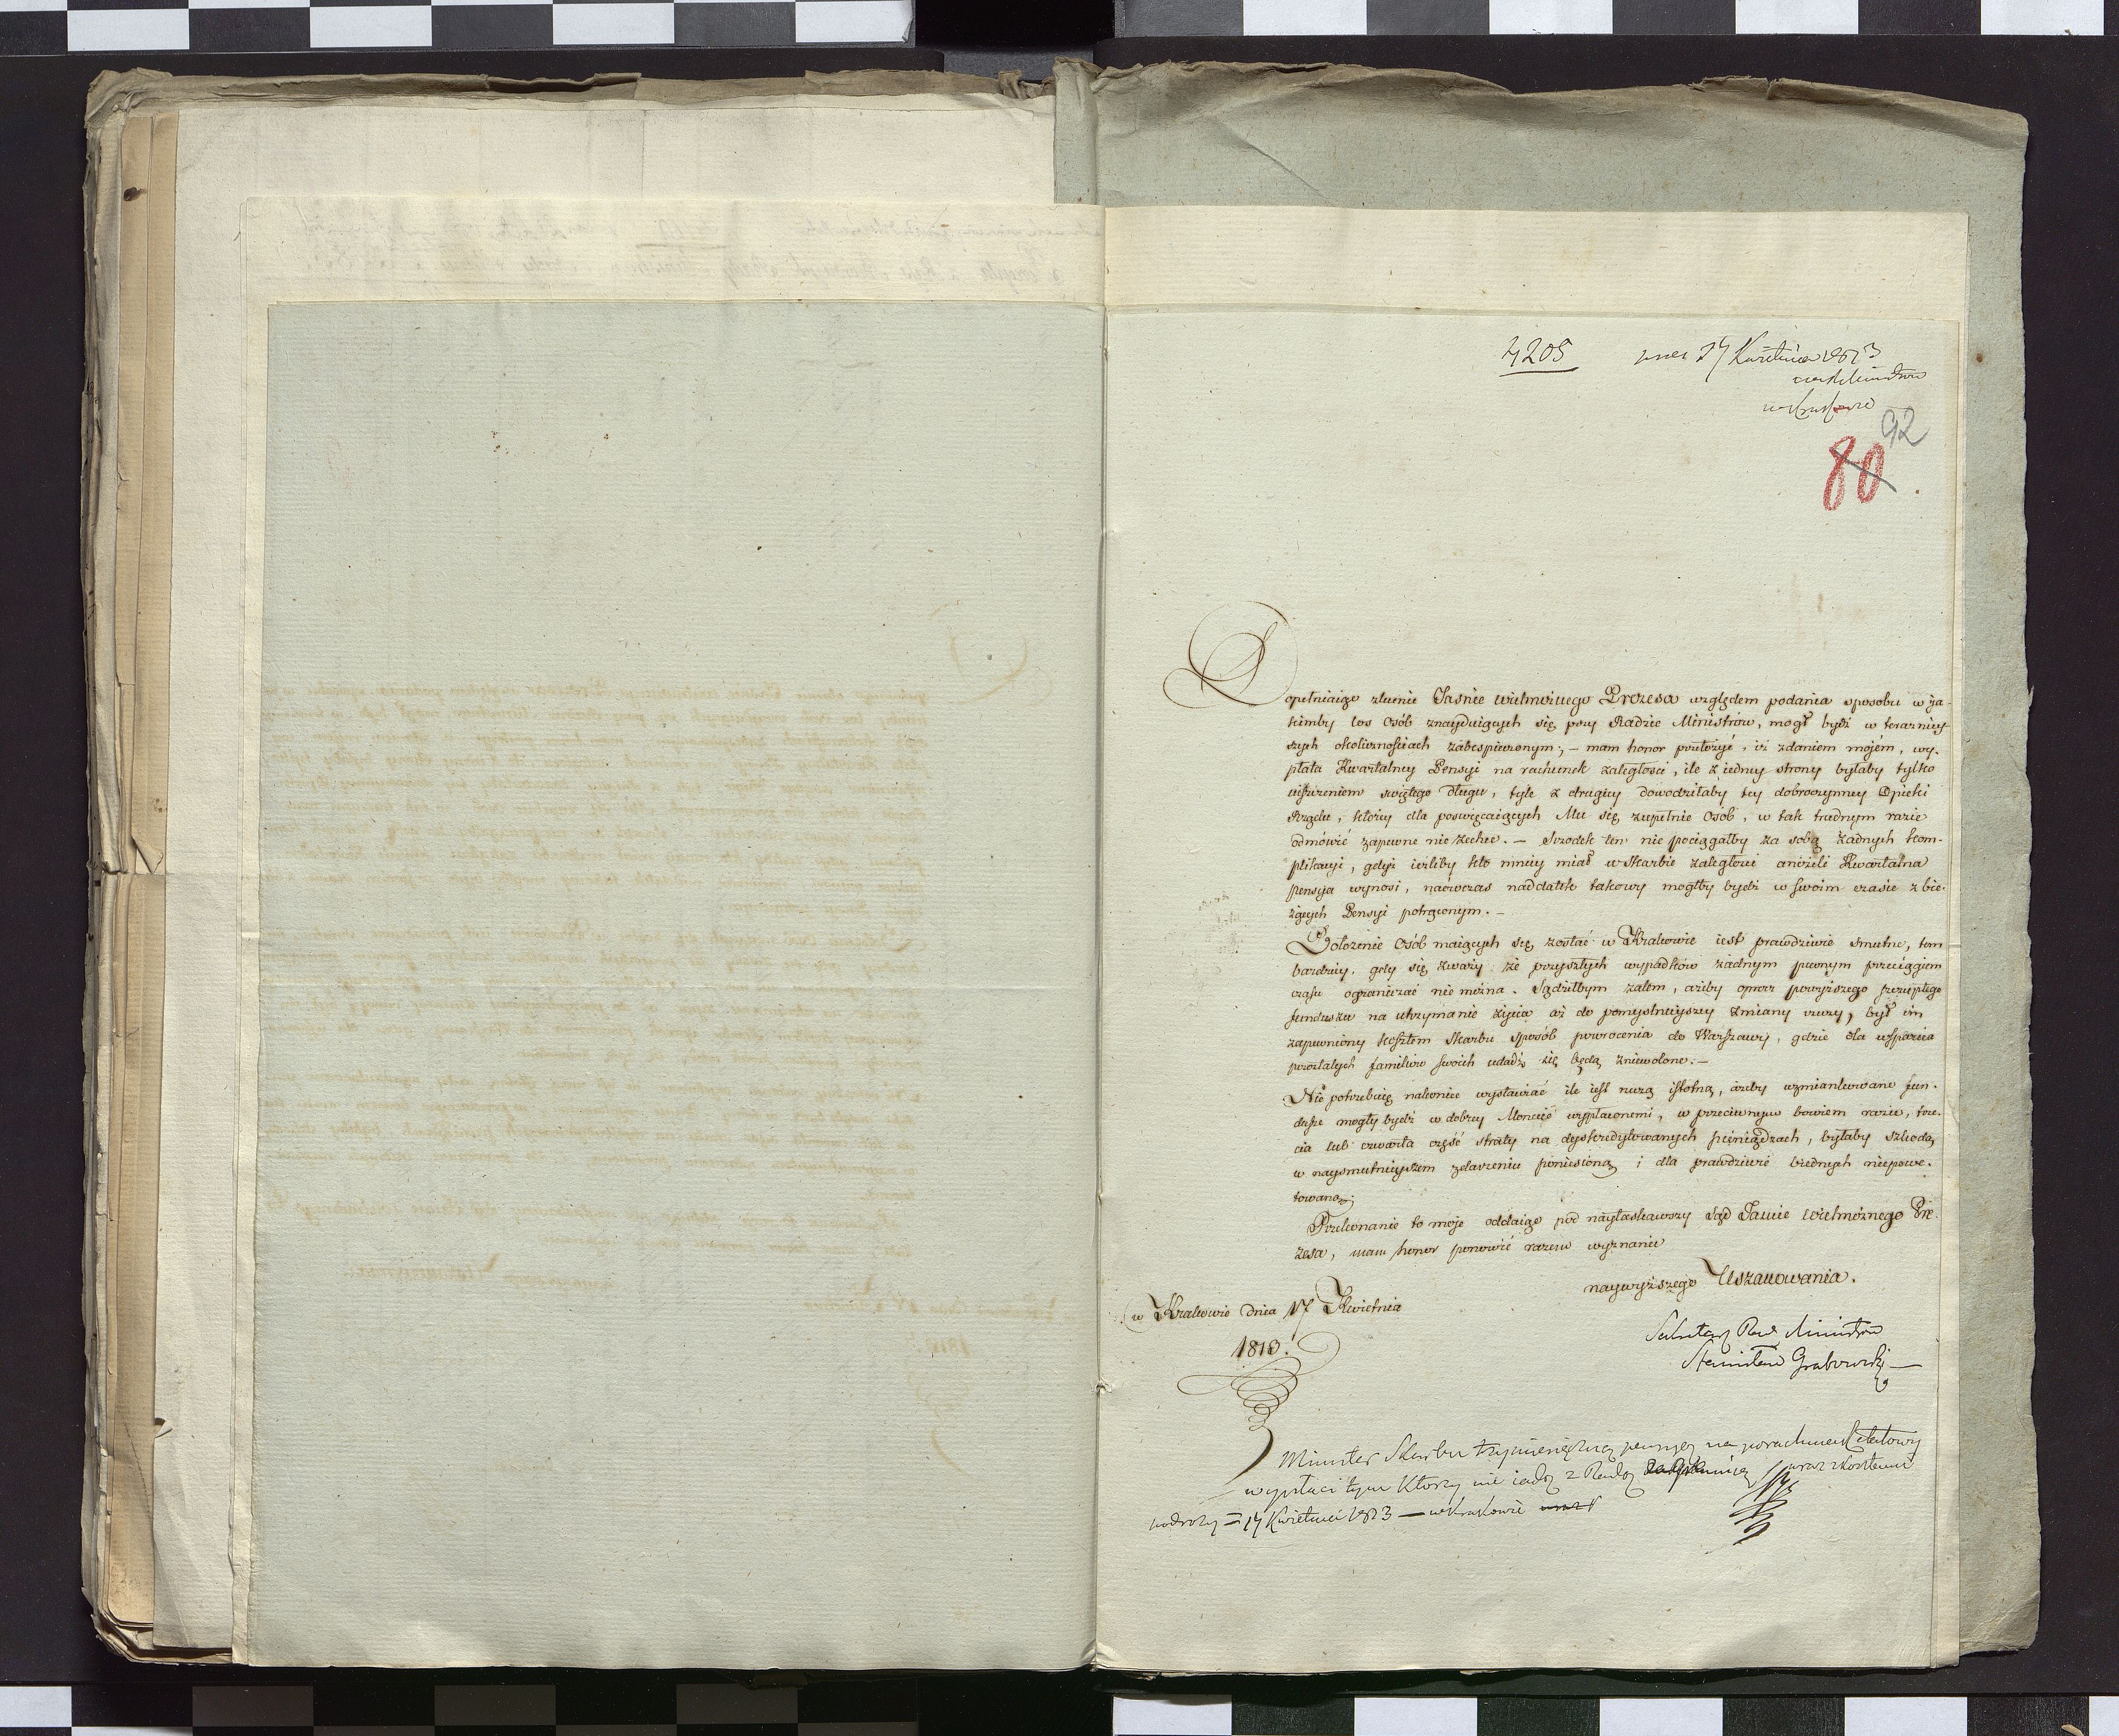 4205 17 Kwietnia 1813
w Krakowie
92
80
Dopełniaiąc zlecenie Jaśnie Wielmożnego Prezesa względem podania sposobu w ja-
kimby los Osób znayduiących się przy Radzie Ministrów, mogł bydź w terazniey-
szych okolicznościach zabespieczonym; – mam honor przełożyć, iż zdaniem mojém, wy-
płata Kwartalney Pensyi na rachunek zaległości, ile z iedney strony byłaby tylko
uiszczeniem świętego długu, tyle z drugiey dowodziłaby tey dobroczynney Opieki
Rządu, ktorey dla poswięcaiących Mu się zupełnie Osób, w tak trudnym razie
odmówić zapewne nie zechce. – Srzodek ten nie pociągałby za sobą żadnych kom-
plikacyi, gdyż ieżliby kto mniey miał w Skarbie zaległości aniżeli Kwartalna
pensya wynosi, naówczas naddatek takowy mogłby bydź w swoim czasie z bie-
żących Pensyi potrąconym. –
Położenie Osób maiących się zostać w Krakowie iest prawdziwie smutne, tem
bardziey, gdy się zważy że przyszłych wypadków żadnym pewnym przeciągiem
czasu ograniczać nie można. Sądziłbym zatem, ażeby oprocz powyższego szczupłego
funduszu na utrzymanie życia aż do pomyslnieyszey zmiany rzeczy, był im
zapewniony kosztem Skarbu sposób powrocenia do Warszawy, gdzie dla wsparcia
pozostałych familiow swoich udadź się będą zniewolone. –
Nie potrzebuię nakoniec wystawiać ile iest rzeczą istotną, ażeby wzmiankowane fun-
dusze mogły bydź w dobrey Monecie wypłaconemi, w przeciwnym bowiem razie, trze-
cia lub czwarta część straty na dyskredytowanych pieniądzach, byłaby szkodą
w naysmutnieyszem zdarzeniu poniesioną i dla prawdziwie biednych niepowe-
towaną.
Przekonanie to moje oddaiąc pod nayłaskawszy sąd Jaśnie Wielmożnego Pre-
zesa, mam honor ponowić razem wyznanie
naywyższego Uszanowania.
w Krakowie dnia 17 Kwietnia
1813.
Sekretarz Rady Ministrów
Stanisław Grabowski
Minister Skarbu trzymiesięczną pensyę na porachunek
wypłaci tym którzy nie iadą z Radą wraz z kosztami
podroży = 17 Kwietnia 1813 — w Krakowie